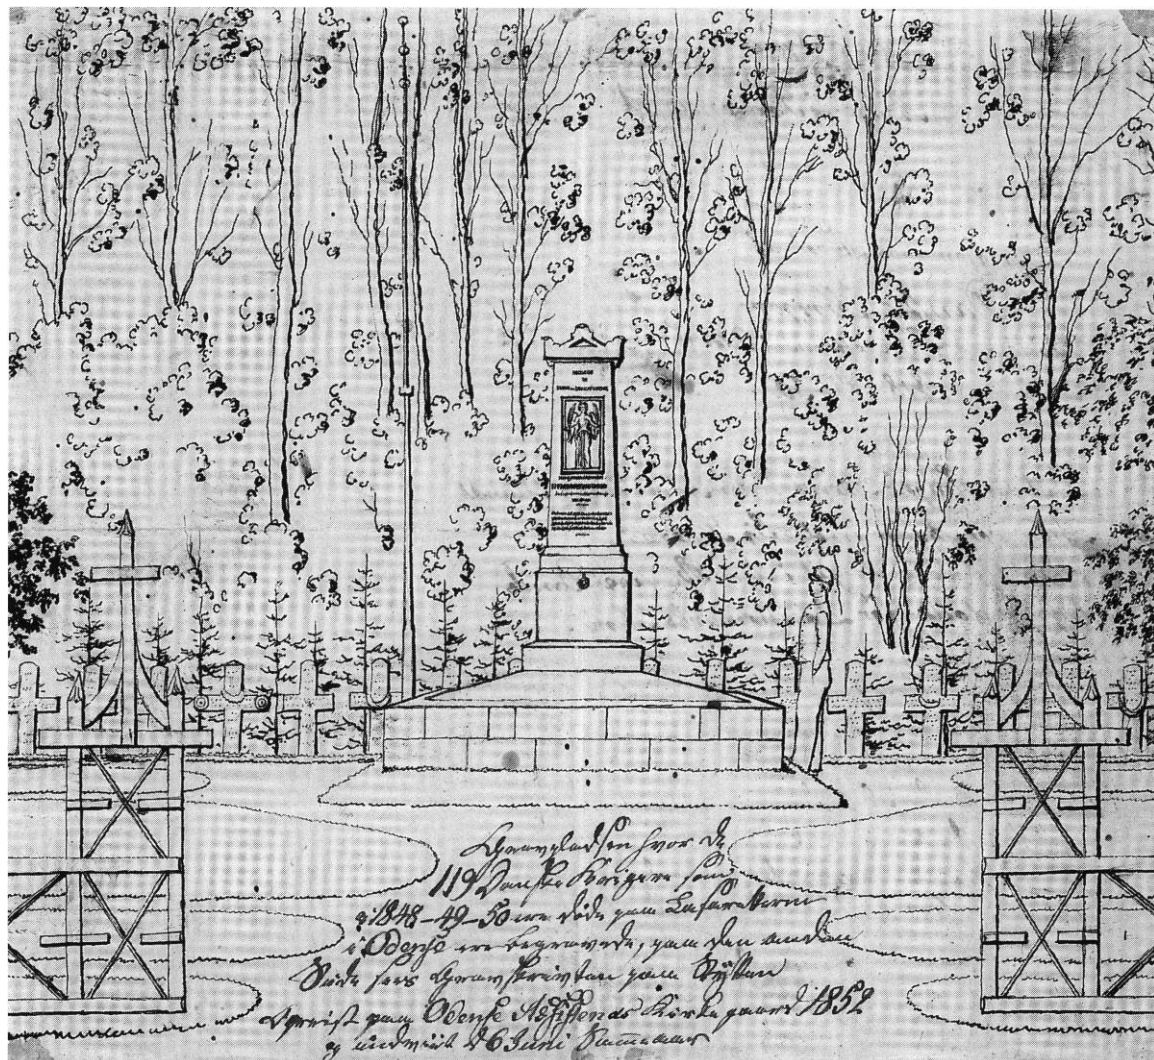 Gravpladsen hvor de
119 Danske Krigere som
i 1848-49-50 ere døde paa Lasaretterne
i Odense ere begravede, paa den anden
Side sees Gravskriften paa Støtten
Opreist paa Odense Assistens Kirkegaard 1852
og indviet d 6 Juni Samme aar